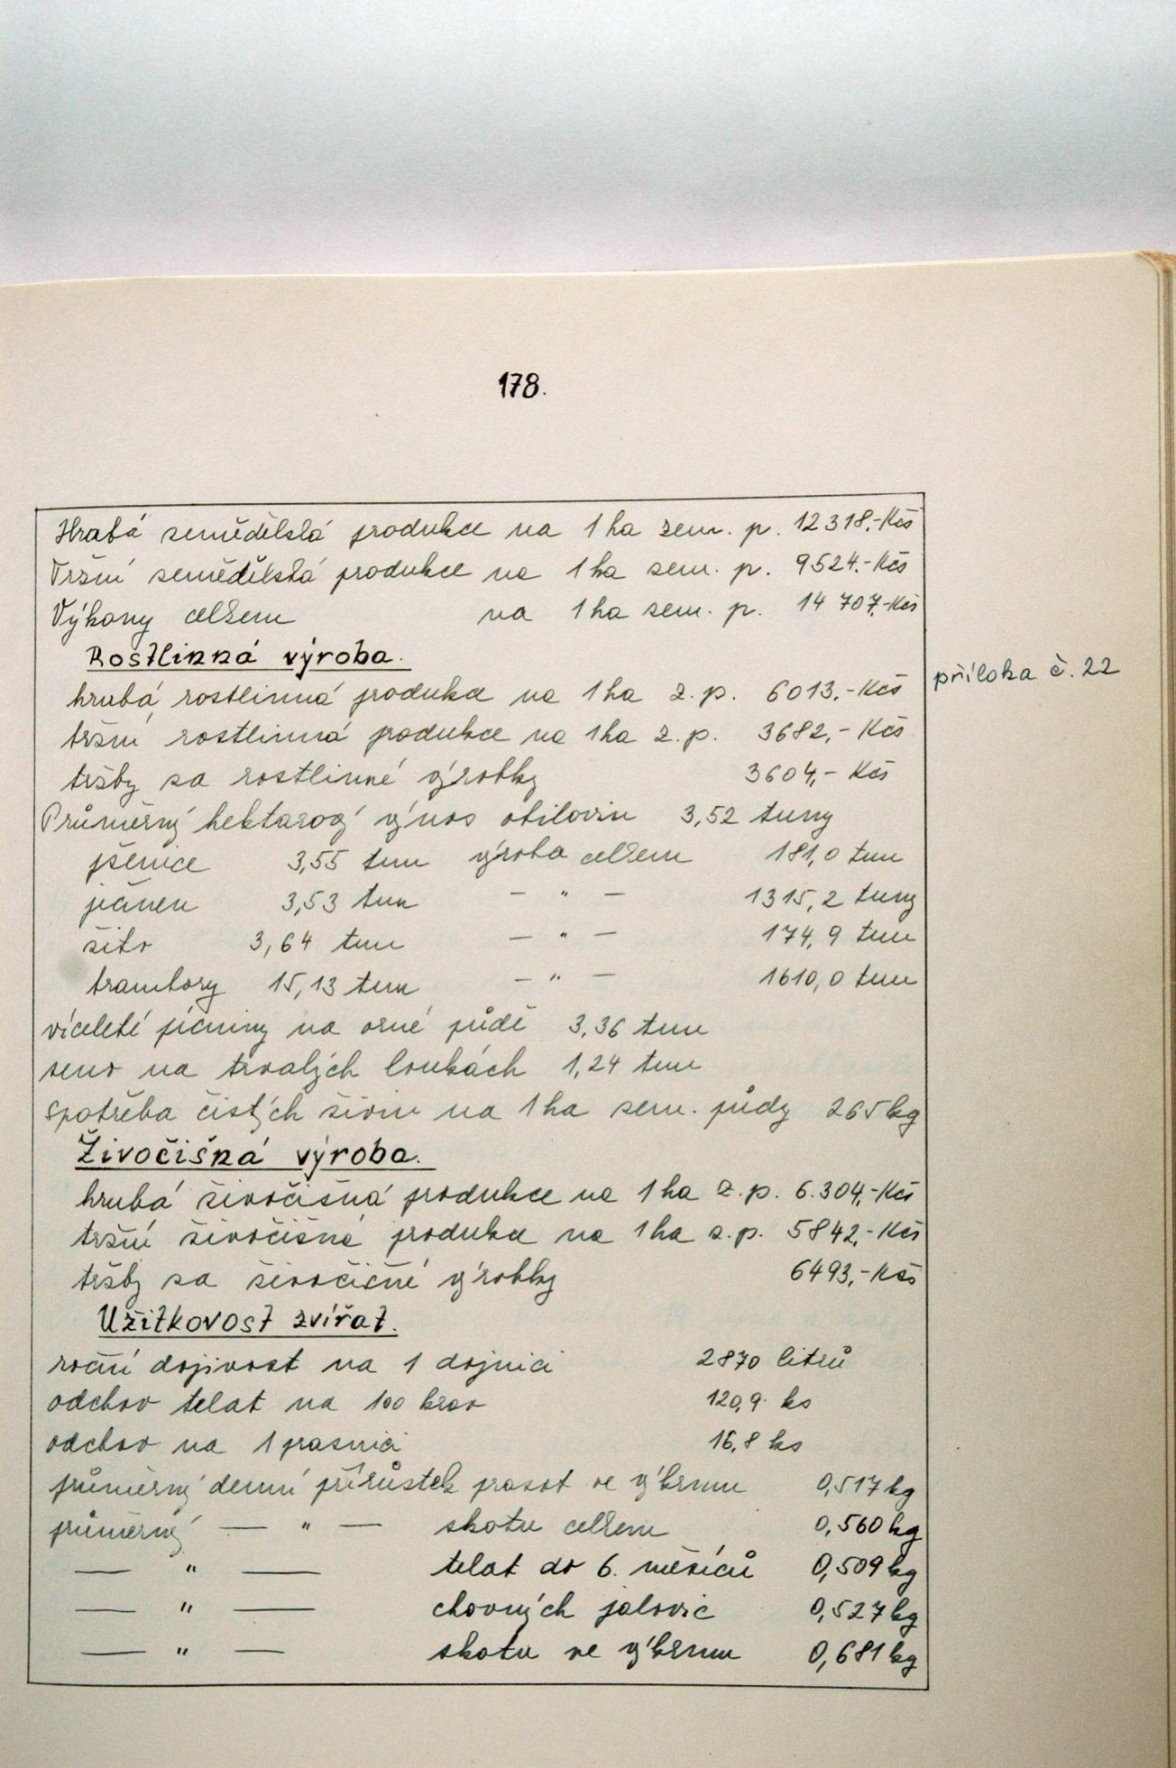 178.
Hrubá zemědělská produkce na 1 ha zem. p. 12 318,-Kčs
Tržní zemědělská produkce na 1 ha zem. p. 9524.-Kčs
Výkony celkem na 1 ha zem. p. 14 707,-Kčs
Rostlinná výroba.
příloha č. 22
hrubá rostlinná produkce na 1 ha z. p. 6013,-Kčs
tržní rostlinná produkce na 1 ha z. p. 3682,- Kčs
tržby za rostlinné výrobky 3604,- Kčs
Průměrný hektarový výnos obilovin 3,52 tuny
pšenice 3,55 tun výroba celkem 181,0 tun
ječmen 3,53 tun — " — 1315,2 tuny
žito 3,64 tun — " — 174,9 tun
brambory 15,13 tun — " — 1610,0 tun
víceleté pícniny na orné půdě 3,36 tun
seno na trvalých loukách 1,24 tun
Spotřeba čistých živin na 1 ha zem. půdy 265 kg
Živočišná výroba.
hrubá živočišná produkce na 1 ha z. p. 6.304,-Kčs
tržní živočišná produkce na 1 ha z. p. 5842,-Kčs
tržby za živočišné výrobky 6493,-Kčs
Užitkovost zvířat.
roční dojivost na 1 dojnici 2870 litrů
odchov telat na 100 krav 120,9 ks
odchov na 1 prasnici 16,8 ks
průměrný denní přírůstek prasat ve výkrmu 0,517 kg
průměrný — " — skotu celkem 0,560 kg
— " — telat do 6. měsíců 0,509 kg
— " — chovných jalovic 0,527 kg
— " — skotu ve výkrmu 0,681 kg